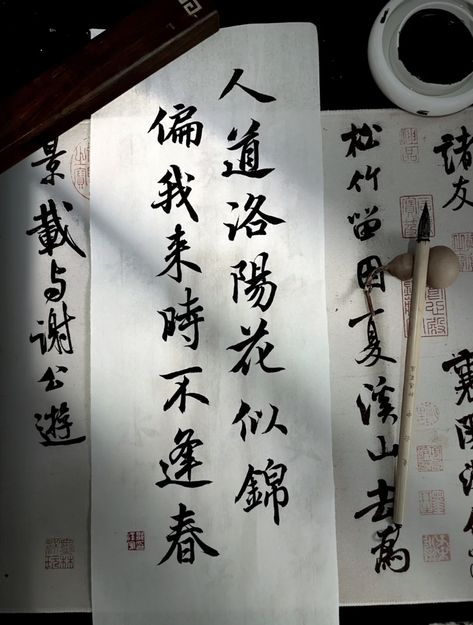 諸友
襄陽
松竹留因夏溪山去為
人道洛陽花似錦
偏我来時不逢春
景載与謝公遊